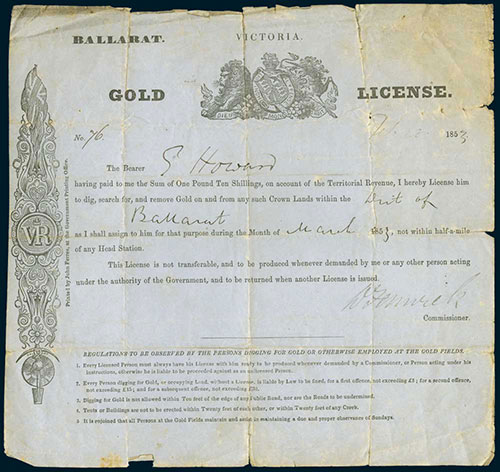 BALLARAT. VICTORIA.
GOLD LICENSE.
DIEU ET MON
No. 76. 1853
The Bearer G Howard
having paid to me the Sum of One Pound Ten Shillings, on account of the Territorial Revenue, I hereby License him
to dig, search for, and remove Gold on and from any such Crown Lands within the of
Ballarat
as I shall assign to him for that purpose during the Month of March 1853, not within half-a-mile
of any Head Station.
This License is not transferable, and to be produced whenever demanded by me or any other person acting
under the authority of the Government, and to be returned when another License is issued.
Commissioner.
VR
Printed by John Ferres, at the Government Printing Office.
REGULATIONS TO BE OBSERVED BY THE PERSONS DIGGING FOR GOLD OR OTHERWISE EMPLOYED AT THE GOLD FIELDS.
1. Every Licensed Person must always have his License with him ready to be produced whenever demanded by a Commissioner, or Person acting under his
instructions, otherwise he is liable to be proceeded against as an unlicensed Person.
2. Every Person digging for Gold, or occupying Land, without a License, is liable by Law to be fined, for a first offence, not exceeding £5; for a second offence,
not exceeding £15; and for a subsequent offence, not exceeding £30.
3. Digging for Gold is not allowed within Ten feet of the edge of any Public Road, nor are the Roads to be undermined.
4. Tents or Buildings are not to be erected within Twenty feet of each other, or within Twenty feet of any Creek.
5. It is enjoined that all Persons at the Gold Fields maintain and assist in maintaining a due and proper observance of Sundays.